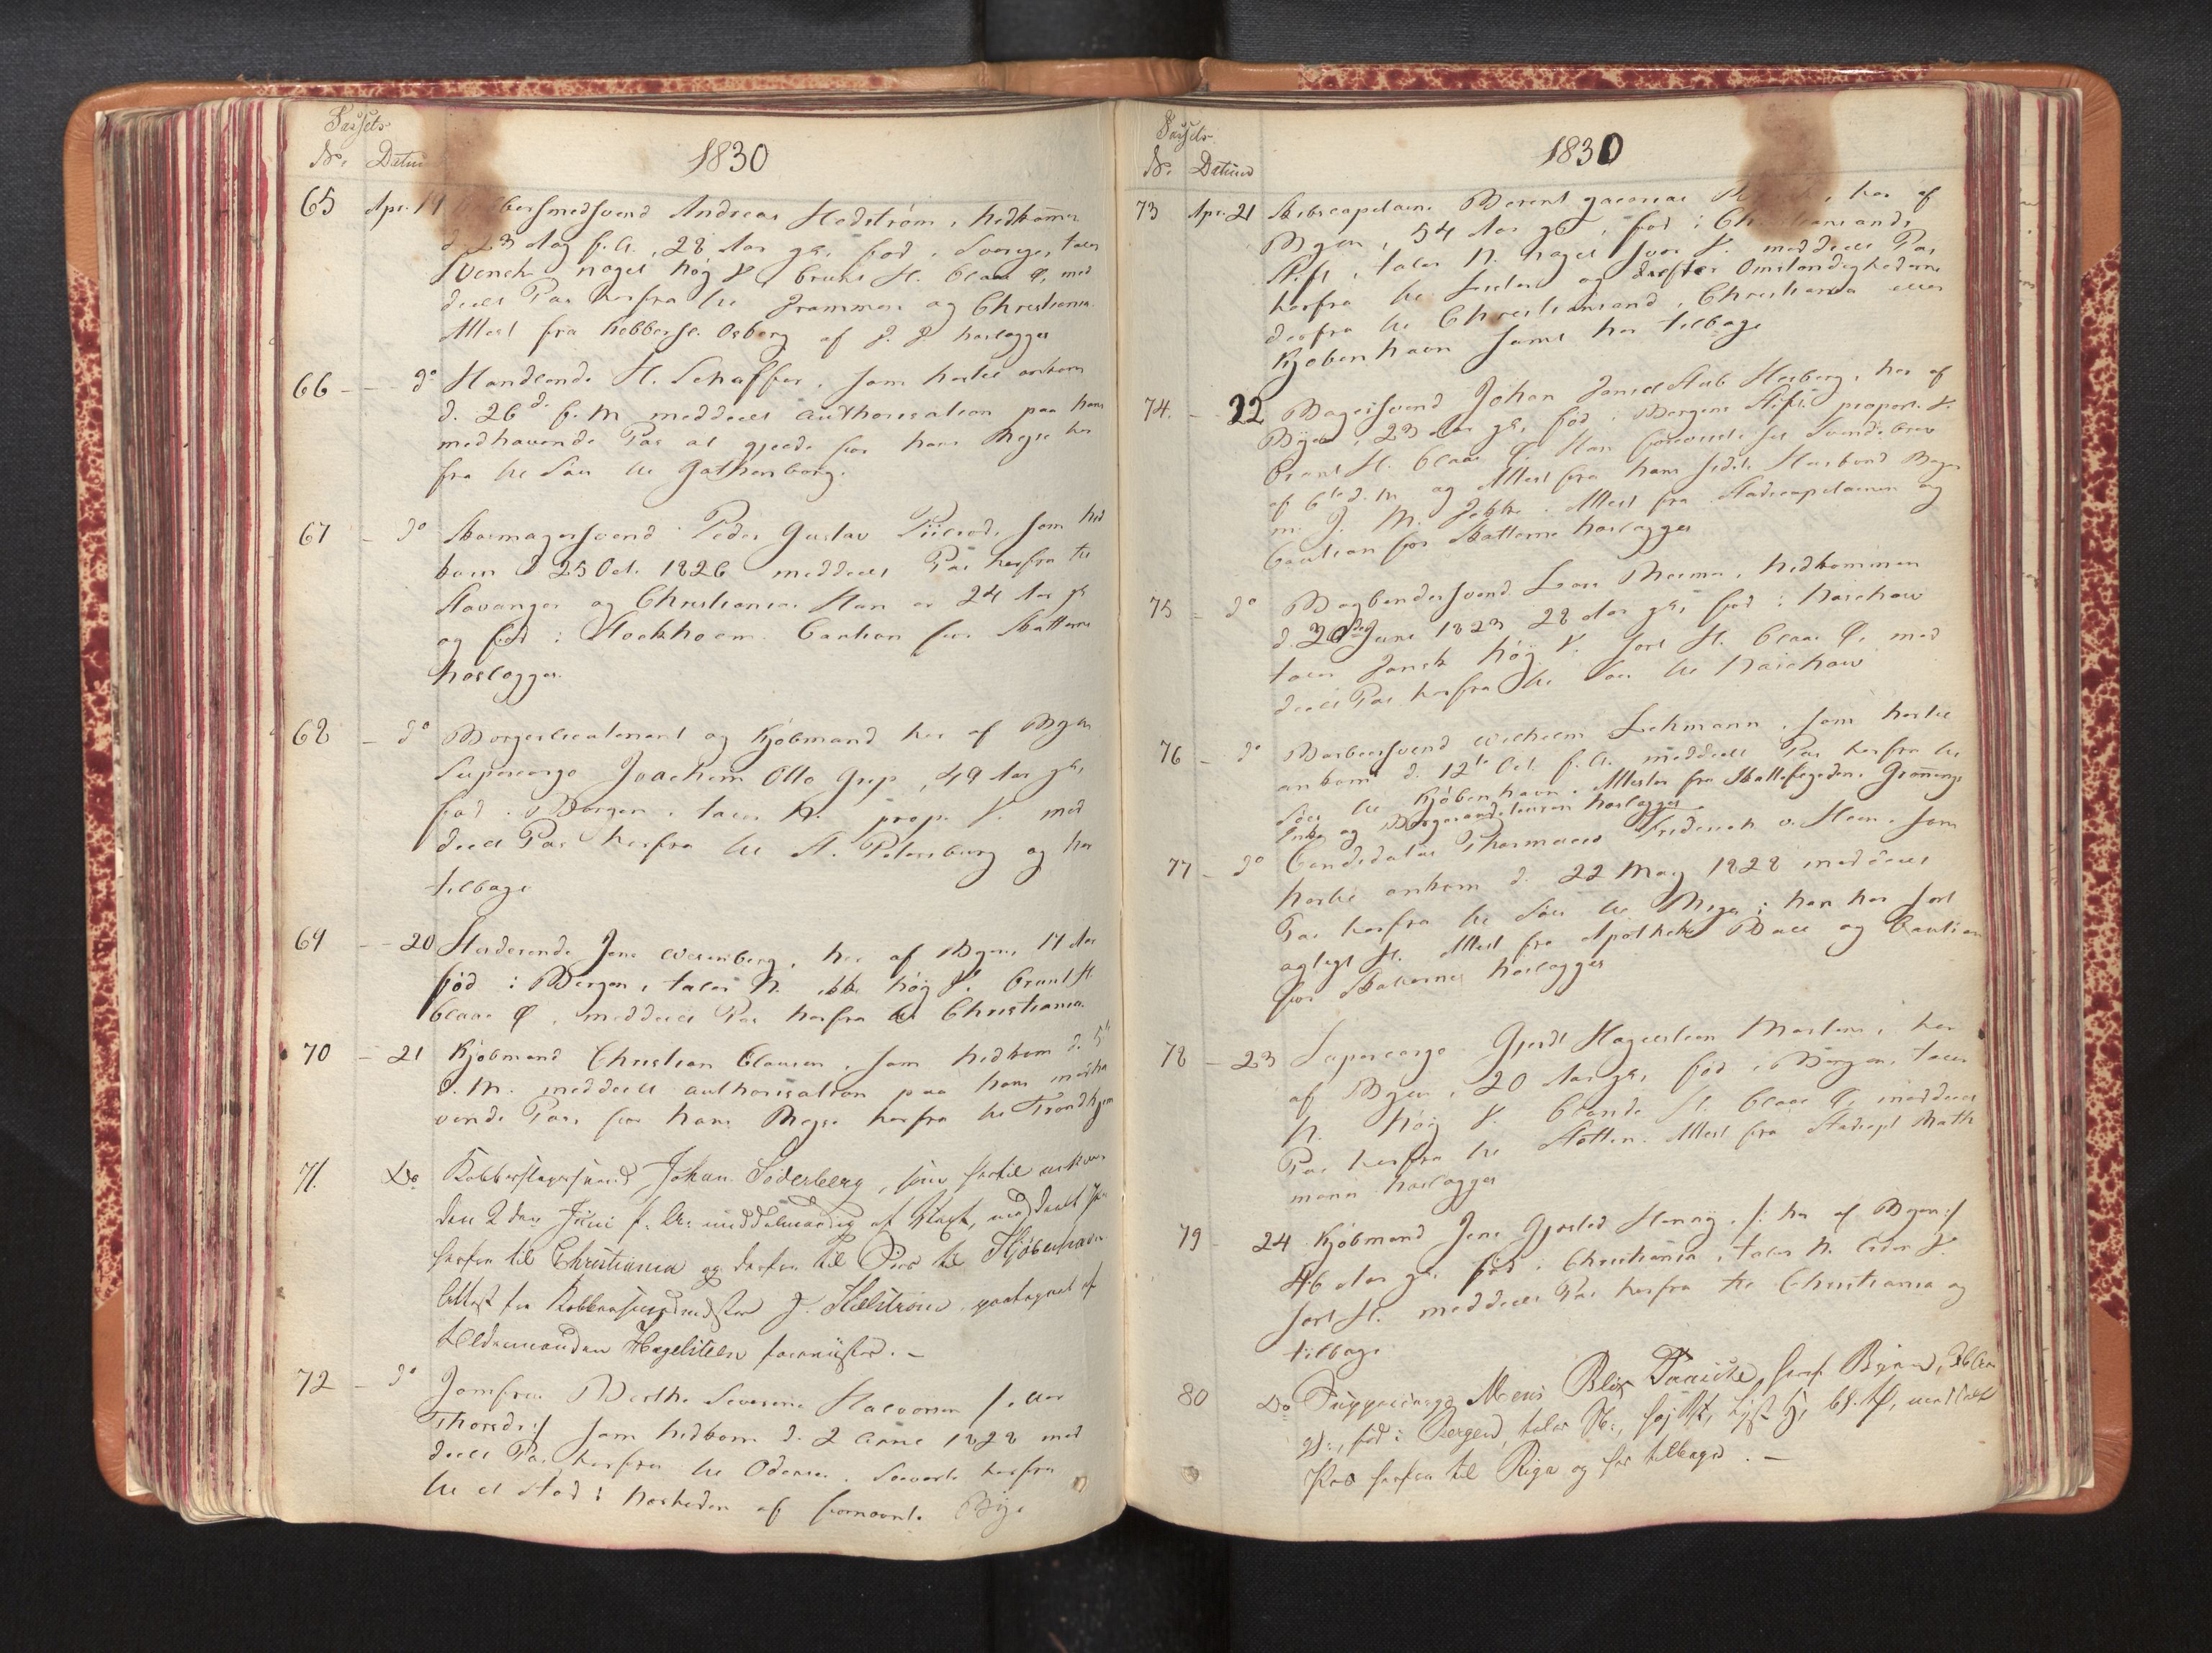 Passets
No. Datum
1830
65 Apr. 19 Kobersmedsvend Andreas Hedstrøm, hidkommen
d. 23 Aug f. A., 28 Aar gl, fød i Sverige, taler
Svensk noget høg V. bruunt H. blaae Ø, med
deelt Pas herfra til Drammen og Christiania
Attest fra Kobbersl. Osberg af J. J. herlegges
66 - do Handlende H. Schaffer, som hertil ankom
d. 26d f. M. meddeelt authorisation paa hans
medhavende Pas at gjelde for hans Reyse her
fra til Søes til Gothenborg.
67 - do Skomagersvend Peder Gustav Piilrod, som hid
kom d 25 Oct. 1826 meddeelt Pas herfra til
Stavanger og Christiania. Han er 24 Aar gl
og fød i Stockholm. Caution for Skatterne
herlegges.
68 - do Borgerlieutenant og Kjøbmand her af Byen
Supercargo Joachim Otto Grip, 49 Aar gl,
fød i Bergen, taler N. prop. V. med
deelt Pas herfra til St. Petersburg og her
tilbage
69 - 20 Studerende Jens Wesenberg, her af Byen, 17 Aar
fød i Bergen, taler N. ikke høg V. bruunt H.
blaae Ø, meddeelt Pas herfra til Christiania
70 - 21 Kjøbmand Christian Clausen, som hidkom d. 5t
d. M. meddeelt authorisation paa hans medha
vende Pas for hans Reyse herfra til Trondhjem
71. Do Kobberslagersvend Johan Söderberg, som hertil ankom
den 2den Juni f. A. middelmaadig af Vext, meddeelt Pas
herfra til Christiania og derfra til Søes til Kjøbenhavn
Attest fra Kobberslagermester J. Hellström, paategnet af
Oldermanden Hagelsteen forevist. -
72 - do Jomfru Berthe Severine Halvorsen /: Aar
Thorsdr :/ som hidkom d. 2 1828 med
deelt Pas herfra til Odense. herfra
til et Sted i Nærheden af fornevnte Bye
Passets
No. Datum
1830
73 Apr. 21 Skibscapitaine Berent her af
Byen, 54 Aar gl, fød i Christiansands
Stift, taler N. noget svær V. meddeelt Pas
herfra til Lister og derefter Omstændighederne
derfra til Christiansand, Christiania eller
Kjøbenhavn samt her tilbage
74. - 22 Bagersvend Johan Stub Herberg, her af
Byen, 23 Aar gl, fød i Bergens Stift. proport. V.
bruunt H. blaae Ø. Han foreviiste sit Svendebrev
af 6te d. M. og Attest fra hans sidste Huusbond Bager
m. J. M. Jekke. Attest fra Stadscapitainen og
Caution for Skatterne herlegges
75 - do Bogbindersvend Lars hidkommen
d. 20de Juni 1823 28 Aar gl, fød i Naschow
taler Dansk høg V. sort H. blaae Ø, med
deelt Pas herfra til Søes til Naschow
76 - do Barbeersvend Wilhelm Lehmann, som hertil
ankom d. 12te Oct. f. A. meddeelt Pas herfra til
Søes til Kjøbenhavn. Attester fra Skattefogeden Grønning
og herlegges
77 - do Candidatus Pharmacie Frederich v. Steen, som
hertil ankom d. 22 May 1828 meddeelt
Pas herfra til Søes til Riga; han har sort
agtigt H. Attest fra Apotheker Bull og Caution
for Skatterne herlegges
78 - 23 Supercargo Gjerdt Hagelsteen Martens, her
af Byen, 20 Aar gl, fød i Bergen, taler
N. høg V. blonde H. blaae Ø, meddeelt
Pas herfra til Stettin. Attest fra Stadscpt Math
mann herlegges
79 - 24 Kjøbmand Jens Gjørted Henny, /: her af Byen :/
46 Aar gl, fød i Christiania, taler N. liden V.
sort H. meddeelt Pas herfra til Christiania og
tilbage
80 Do Suppercargo Mens Blix Daniche, her af Byen, 26 Aar
gl., fød i Bergen, taler N., høj V, lyst H, bl. Ø, meddeelt
Pas herfra til Riga og her tilbage. -